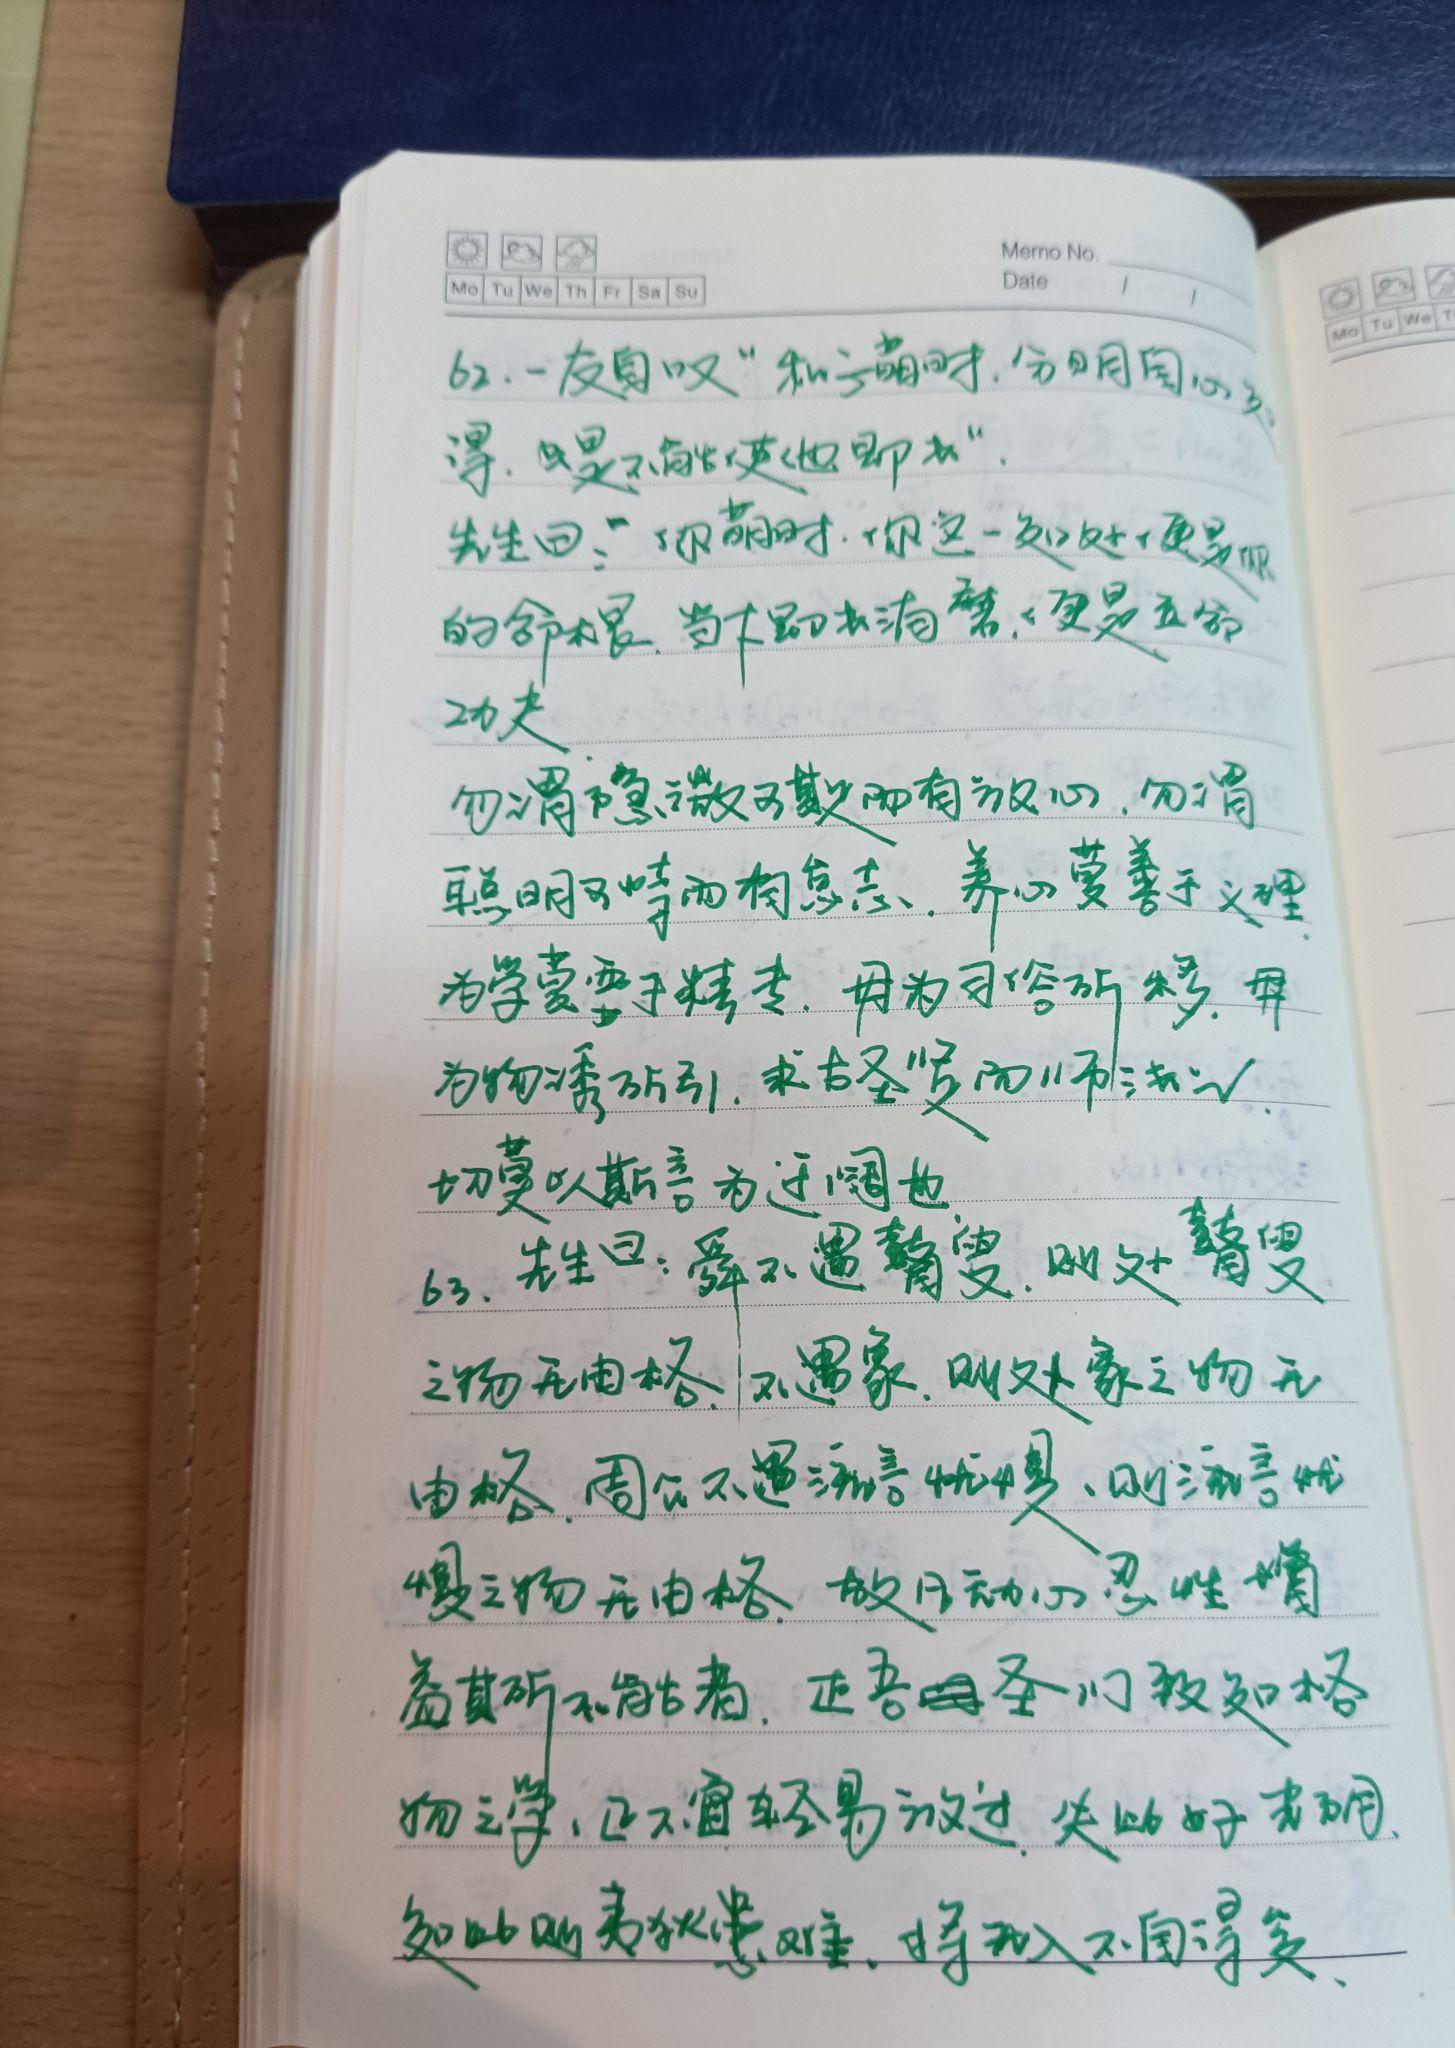 Memo No.
Date / /
Mo Tu We Th Fr Sa Su
62.一友自叹“私意萌时,分明自心知
得,只是不能使他即去”.
先生曰:“你萌时,你这一知处,便是你
的命根,当下即去消磨,便是立命
功夫
勿谓隐微可欺而有放心,勿谓
聪明可恃而有怠志,养心莫善于义理
为学莫要于精专,毋为习俗所移,毋
为物诱所引,求古圣贤而师法之,
切莫以斯言为迂阔也
63.先生曰:舜不遇瞽叟,则处瞽叟
之物无由格,不遇象,则处象之物无
由格,周公不遇流言忧惧,则流言忧
惧之物无由格,故凡动心忍性增
益其所不能者,正吾圣门致知格
物之学,正不宜轻易放过,失此好光阴,
知此则夷狄患难,将无入不自得矣、
Mo Tu We T